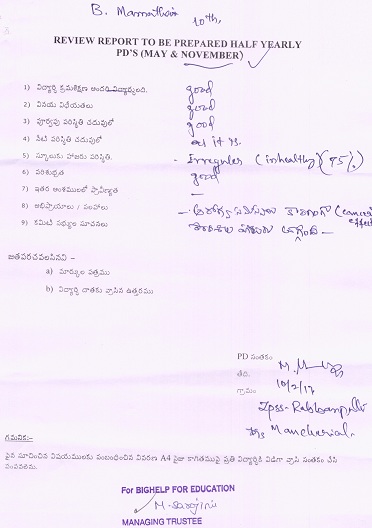 B. Mamatha 10th,
REVIEW REPORT TO BE PREPARED HALF YEARLY
PD'S (MAY & NOVEMBER)
1) విద్యార్థి క్రమశిక్షణ అందరి విద్యార్థులది. good
2) వినయ విధేయతలు good
3) పూర్వపు పరిస్థితి చదువులో good
4) నేటి పరిస్థితి చదువులో as it is.
5) స్కూలుకు హాజరు పరిస్థితి. - Irregular (inhealthy) (95%)
6) పరిశుభ్రత good
7) ఇతర అంశములలో ప్రావీణ్యత —
8) అభిప్రాయాలు / సలహాలు
9) కమిటి సభ్యుల సూచనలు
జతపరచవలసినవి -
a) మార్కుల పత్రము
b) విద్యార్థి దాతకు వ్రాసిన ఉత్తరము
PD సంతకం
తేది. 10/2/17
గ్రామం
ZPSS-
Mancherial.
గమనిక:-
పైన సూచించిన విషయములకు సంబంధించిన వివరణ A4 సైజు కాగితముపై ప్రతి విద్యార్థికి విడిగా వ్రాసి సంతకం చేసి
పంపవలెను.
For BIGHELP FOR EDUCATION
M. Sarojini
MANAGING TRUSTEE